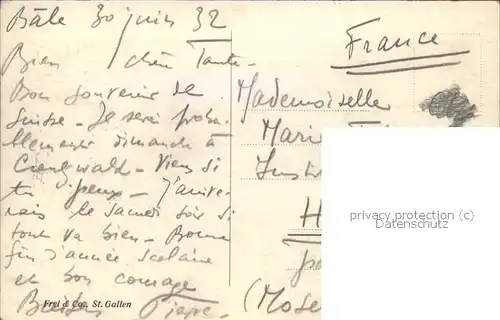 Bâle 30 juin 32
Bien chère Tante -
Bon souvenir de
Suisse - Je serai proba-
blement dimanche à
Creutzwald - Viens si
tu peux - J'arrive-
rais le samedi soir si
tout va bien - Bonne
fin d'année scolaire
et bon courage
Baisers Pierre -
Frei & Co., St. Gallen
France
Mademoiselle
Marie
H
(Mose
privacy protection (c)
Datenschutz